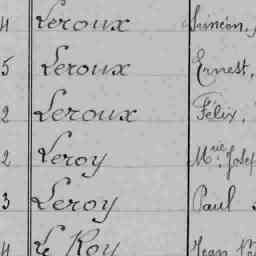 4 Leroux Siméon,
5 Leroux Ernest,
2 Leroux Félix,
2 Leroy Mme Josep
3 Leroy Paul
4 Le Roy Jean